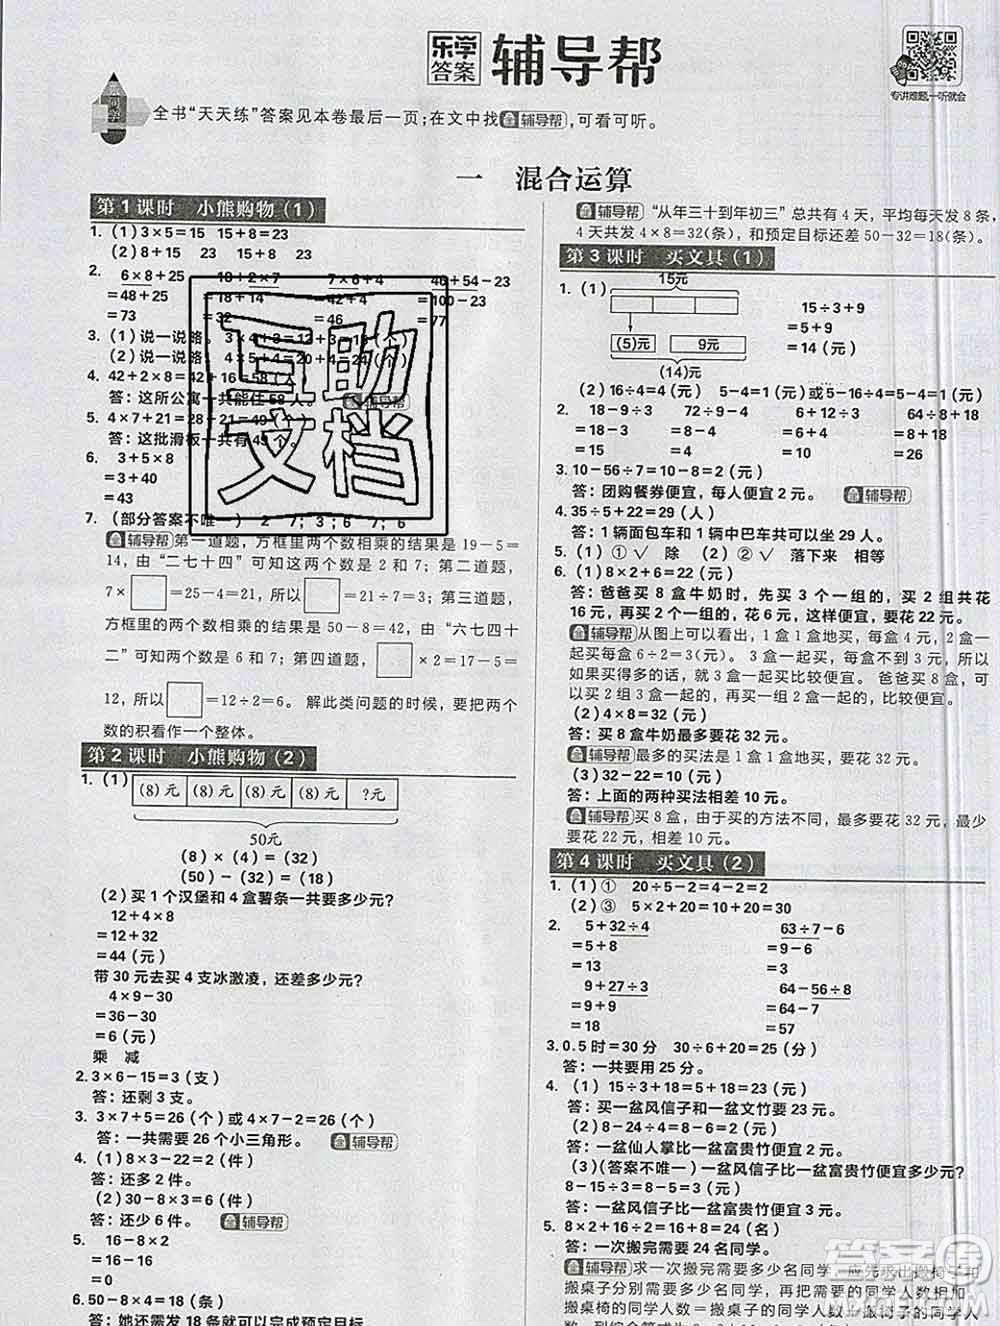 乐学答案 辅导帮
专讲难题,一听就会
全书“天天练”答案见本卷最后一页;在文中找 辅导帮,可看可听。
一 混合运算
第1课时 小熊购物(1)
1. (1)3×5=15 15+8=23
(2)8+15 23 15+8 23
2. 6×8+25 18+2×7 7×6+4 46+54-23
=48+25 =42+4 =100-23
=73 =32 =46 =77
3. (1)说一说略。
(2)说一说略。 4×5+4=24
4. 42+2×8=42+16=58(人)
答:这所公寓一共能住58人。 辅导帮
5. 4×7+21=28+21=49(个)
答:这批滑板一共有49个。
6. 3+5×8
=3+40
=43
7. (部分答案不唯一) 2 7;3;6 7;6
辅导帮 第一道题,方框里两个数相乘的结果是19-5=
14,由“二七十四”可知这两个数是2和7;第二道题,
7×□=25-4=21,所以□=21÷7=3;第三道题,
方框里的两个数相乘的结果是50-8=42,由“六七四十
二”可知两个数是6和7;第四道题,□×2=17-5=
12,所以□=12÷2=6。解此类问题的时候,要把两个
数的积看作一个整体。
第2课时 小熊购物(2)
1. (1) (8)元 (8)元 (8)元 (8)元 ?元
50元
(8)×(4)=(32)
(50)-(32)=(18)
(2)买1个汉堡和4盒薯条一共要多少元?
12+4×8
=12+32
=44(元)
带30元去买4支冰激凌,还差多少元?
4×9-30
=36-30
=6(元)
乘 减
2. 3×6-15=3(支)
答:还剩3支。
3. 3×7+5=26(个)或4×7-2=26(个)
答:一共需要26个小三角形。 辅导帮
4. (1)8×3-22=2(件)
答:还多2件。
(2)30-8×3=6(件)
答:还少6件。 辅导帮
5. 16-8×2
=16-16
=0
6. 50-8×4=18(条)
答:她还需发18条就可以完成预定目标。
辅导帮 “从年三十到年初三”总共有4天,平均每天发8条,
4天共发4×8=32(条),和预定目标还差50-32=18(条)。
第3课时 买文具(1)
1. (1) 15元
15÷3+9
(5)元 9元 =5+9
(14)元 =14(元)
(2)16÷4=4(元) 5-4=1(元)或5-16÷4=5-4=1(元)
2. 18-9÷3 72÷9-4 6+12÷3 64÷8+8
=18-3 =8-4 =6+4 =8+8
=15 =4 =10 =16
3. 10-56÷7=10-8=2(元)
答:团购餐券便宜,每人便宜2元。 辅导帮
4. 35÷5+22=29(人)
答:1辆面包车和1辆中巴车共可以坐29人。
5. (1)①√ 除 (2)②√ 落下来 相等
6. (1)8×2+6=22(元)
答:爸爸买8盒牛奶时,先买3个一组的,买2组共花
16元,再买2个一组的,花6元,这样便宜,要花22元。
辅导帮 从图上可以看出,1盒1盒地买,每盒4元,2盒一
起买每盒6÷2=3(元),3盒一起买,每盒不到3元,所以
如果买得多的话,就3盒一起买,比较便宜。爸爸买8盒,可
以买2组3盒一起的,再买一组2盒一起的,比较便宜。
(2)4×8=32(元)
答:买8盒牛奶最多要花32元。
辅导帮 最多的买法是1盒1盒地买,要花32元。
(3)32-22=10(元)
答:上面的两种买法相差10元。
辅导帮 买8盒,由于买的方法不同,最多要花32元,最少
要花22元,相差10元。
第4课时 买文具(2)
1. (1)① 20÷5-2=4-2=2
(2)③ 5×2+20=10+20=30
2. 5+32÷4 63÷7-6
=5+8 =9-6
=13 =3
9+27÷3 64-56÷8
=9+9 =64-7
=18 =57
3. 0.5时=30分 30÷6+20=25(分)
答:一共要用25分。
4. (1)15÷3+18=5+18=23(元)
答:买一盆风信子和一盆文竹要23元。
(2)8-24÷4=8-6=2(元)
答:一盆仙人掌比一盆富贵竹便宜2元。
(3)(答案不唯一)一盆风信子比一盆富贵竹便宜多少元?
8-15÷3=8-5=3(元)
答:一盆风信子比一盆富贵竹便宜3元。
5. 8×2+16÷2=16+8=24(名)
答:一次搬完需要24名同学。
辅导帮 求一次搬完需要多少名同学,应先求出搬椅子和
搬桌子分别需要的同学人数,再把需要的同学人数相加。
搬桌椅的同学人数=搬桌子的同学人数+搬椅子的同学人
互助文档
答案